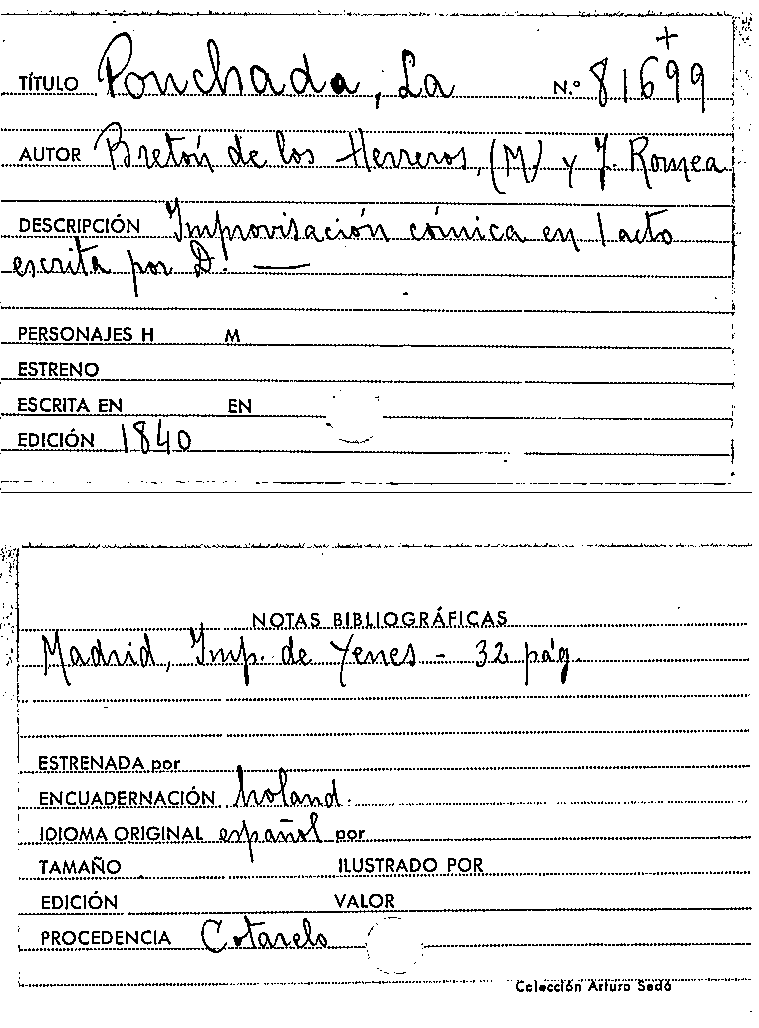 +
TÍTULO Ponchada, La N.º 81699
AUTOR Bretón de los Herreros, (M) y J. Romea
DESCRIPCIÓN Improvisación cómica en 1 acto
escrita por D. —
PERSONAJES H M
ESTRENO
ESCRITA EN EN
EDICIÓN 1840
NOTAS BIBLIOGRÁFICAS
Madrid, Imp. de Yenes - 32 pág.
ESTRENADA por
ENCUADERNACIÓN holand.
IDIOMA ORIGINAL español por
TAMAÑO ILUSTRADO POR
EDICIÓN VALOR
PROCEDENCIA Cotarelo
Colección Arturo Sedó